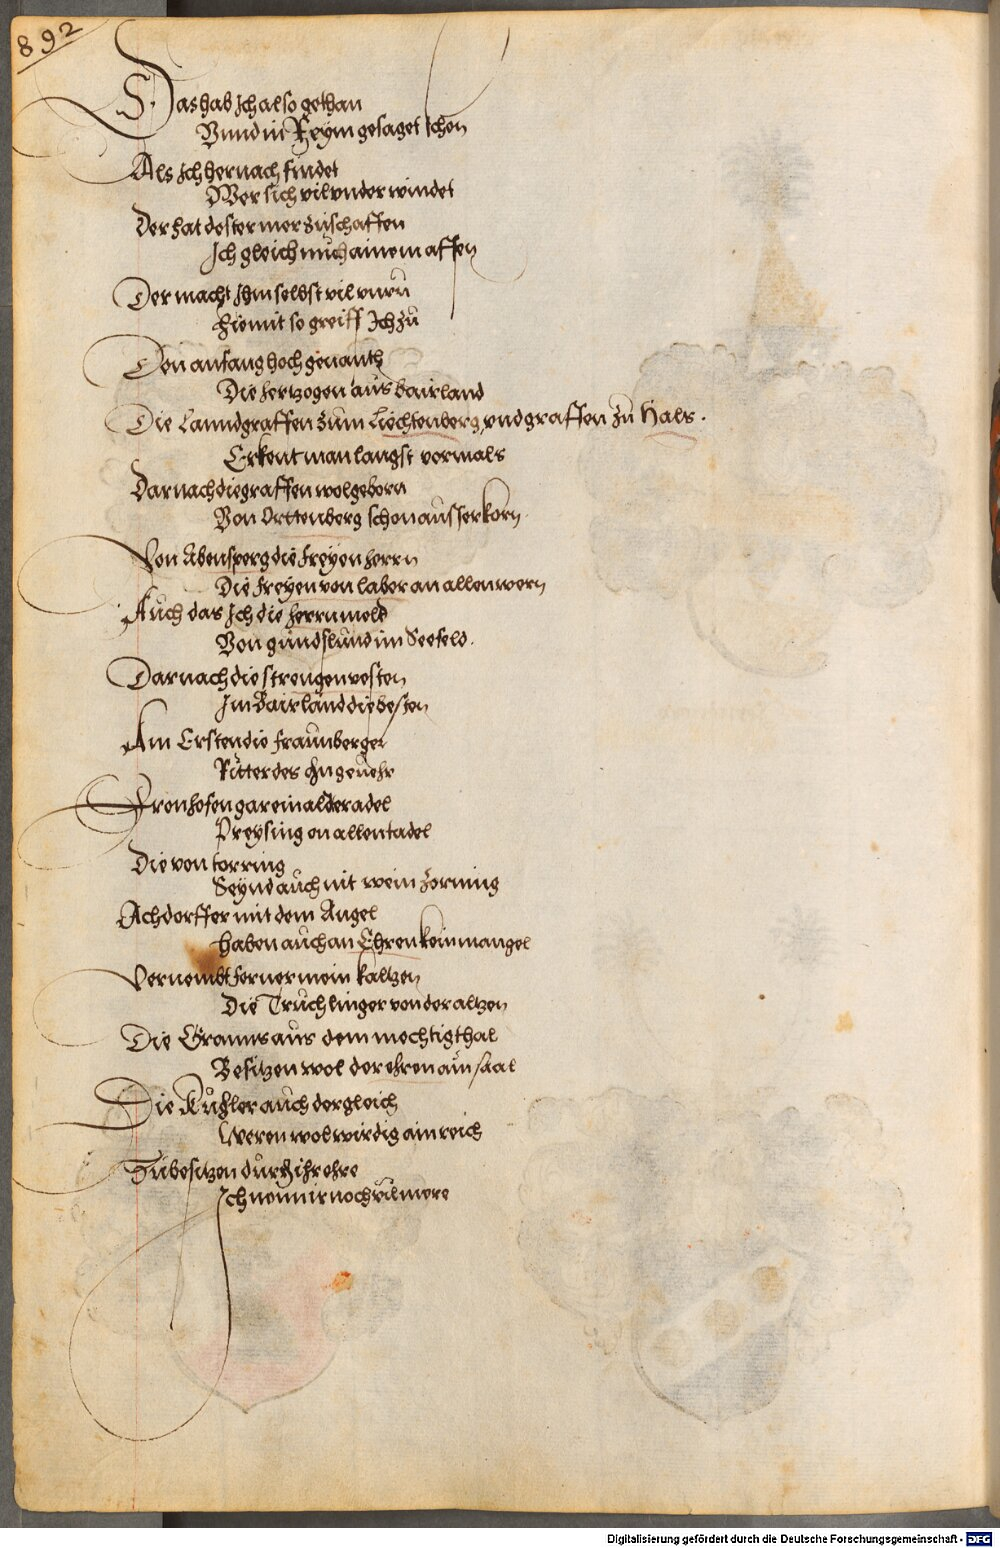 892
Das hab Ich also gethan
Vnnd in Reÿm gesaget schon
Als Ich hernach findet
Wer sich vil vnderwindet
Der hat dester mer zu schaffen
Ich gleich mich ainem affen
Der macht Ihm selbst vil vnru
Hiemit so greiff Ich zu
Den anfang hoch genanth
Die hertzogen aus bairland
Die Lanndgraffen zum Liechtenberg, vnd graffen zu Hals.
Erkent man langst vormals
Darnach die graffen wolgeborn
Von Orttenberg schon ausserkorn
Von Abensperg die freÿen herrn
Die freÿen von laber an allen wern
Auch das Ich die herrn meld
Von gundlfund im Seefeld.
Darnach die strengen vesten
Im Bairland die besten
Am Ersten die fraunberger
Ritter des
Frenhofen gar ein alder adel
Preÿsing on allen tadel
Die von torring
Seÿnd auch nit wein zorning
Achdorffer mit dem Angel
haben auch an Ehren kein mangel
Vernembt ferner mein kaltzen
Die Truchlinger von der altzen
Die Granns aus dem mechtig thal
Besitzen wol der ehren ain saal
Die Kuchler auch dergleich
Weren wol wirdig ain reich
Zu besitzen durch ihr ehre
Ich nenn ir noch vil mere
Digitalisierung gefördert durch die Deutsche Forschungsgemeinschaft - DFG